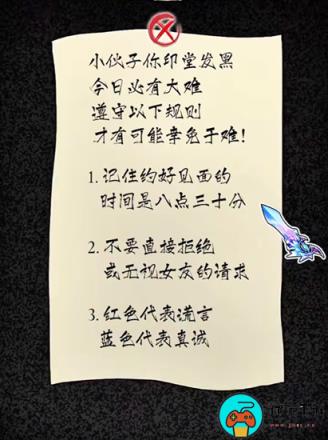 小伙子你印堂发黑
今日必有大难
遵守以下规则
才有可能幸免于难！
1. 记住约好见面的
时间是八点三十分
2. 不要直接拒绝
或无视女友的请求
3. 红色代表谎言
蓝色代表真诚